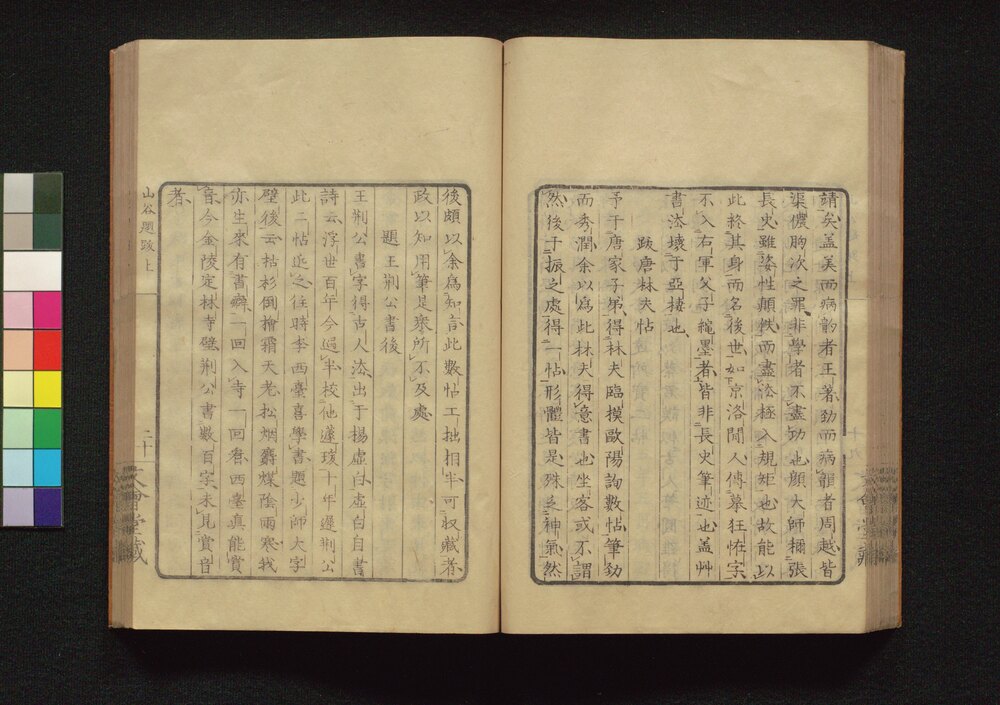 靖矣盖美而病韵者王著勁而病韻者周越皆
渠儂胸次之罪非學者不盡功也顔大師稱張
長史雖姿性顛佚而盡法極入規矩也故能以
此終其身而名後世如京洛間人傳摹狂恠字
不入右軍父子繩墨者皆非長史筆迹也盖艸
書法壊于亞棲也
跋唐林夫帖
予于唐家子弟得林夫臨模歐陽詢數帖筆勁
而秀潤余以爲此林夫得意書也坐客或不謂
然後于振之處得一帖形體皆是殊乏神氣然
後頗以余爲知言此數帖工拙相半可収藏者
政以知用筆是衆所不及處
題王荆公書後
王荆公書字得古人法出于揚虚白虚白自書
詩云浮世百年今過半校他蘧瑗十年遲荆公
此二帖近之往時李西臺喜學書題少師大字
壁後云枯杉倒檜霜天老松烟麝煤陰雨寒我
亦生來有書癖一回入寺一回看西臺真能賞
音今金陵定林寺壁荆公書數百字未見賞音
者
山谷題跋上
二十
文會堂藏
文會堂藏